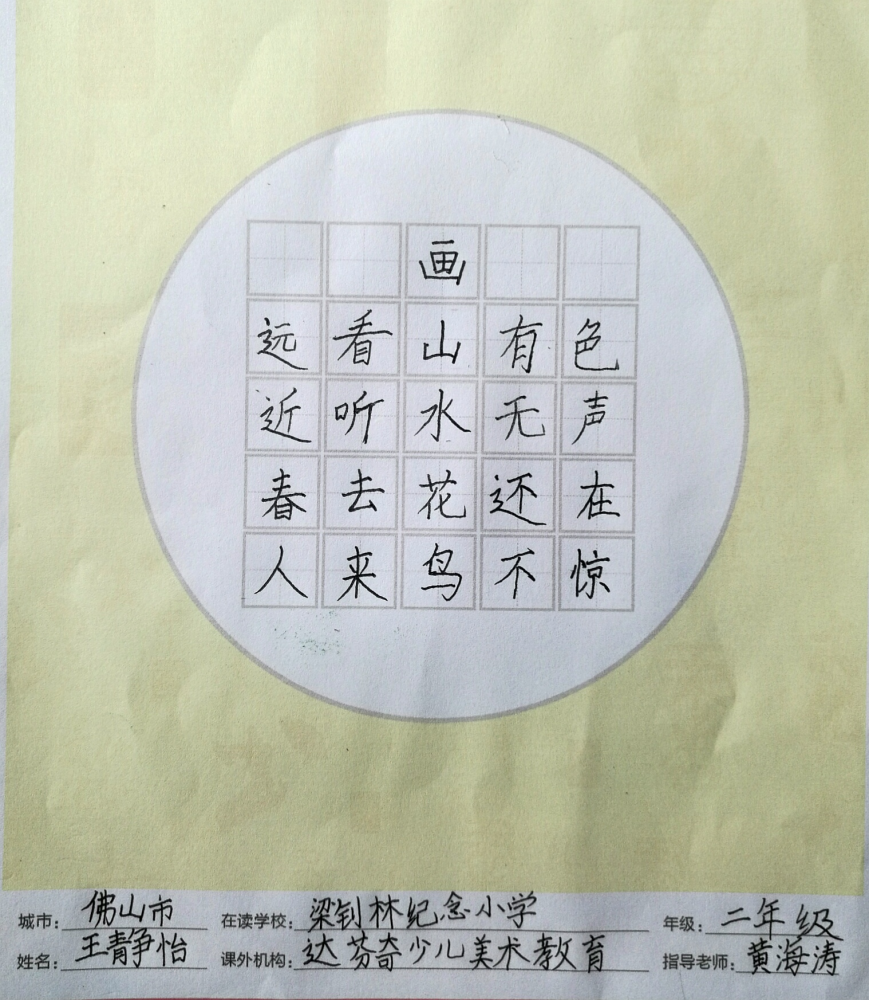 画
远看山有色
近听水无声
春去花还在
人来鸟不惊
城市：佛山市 在读学校：梁钊林纪念小学 年级：二年级
姓名：王静怡 课外机构：达芬奇少儿美术教育 指导老师：黄海涛